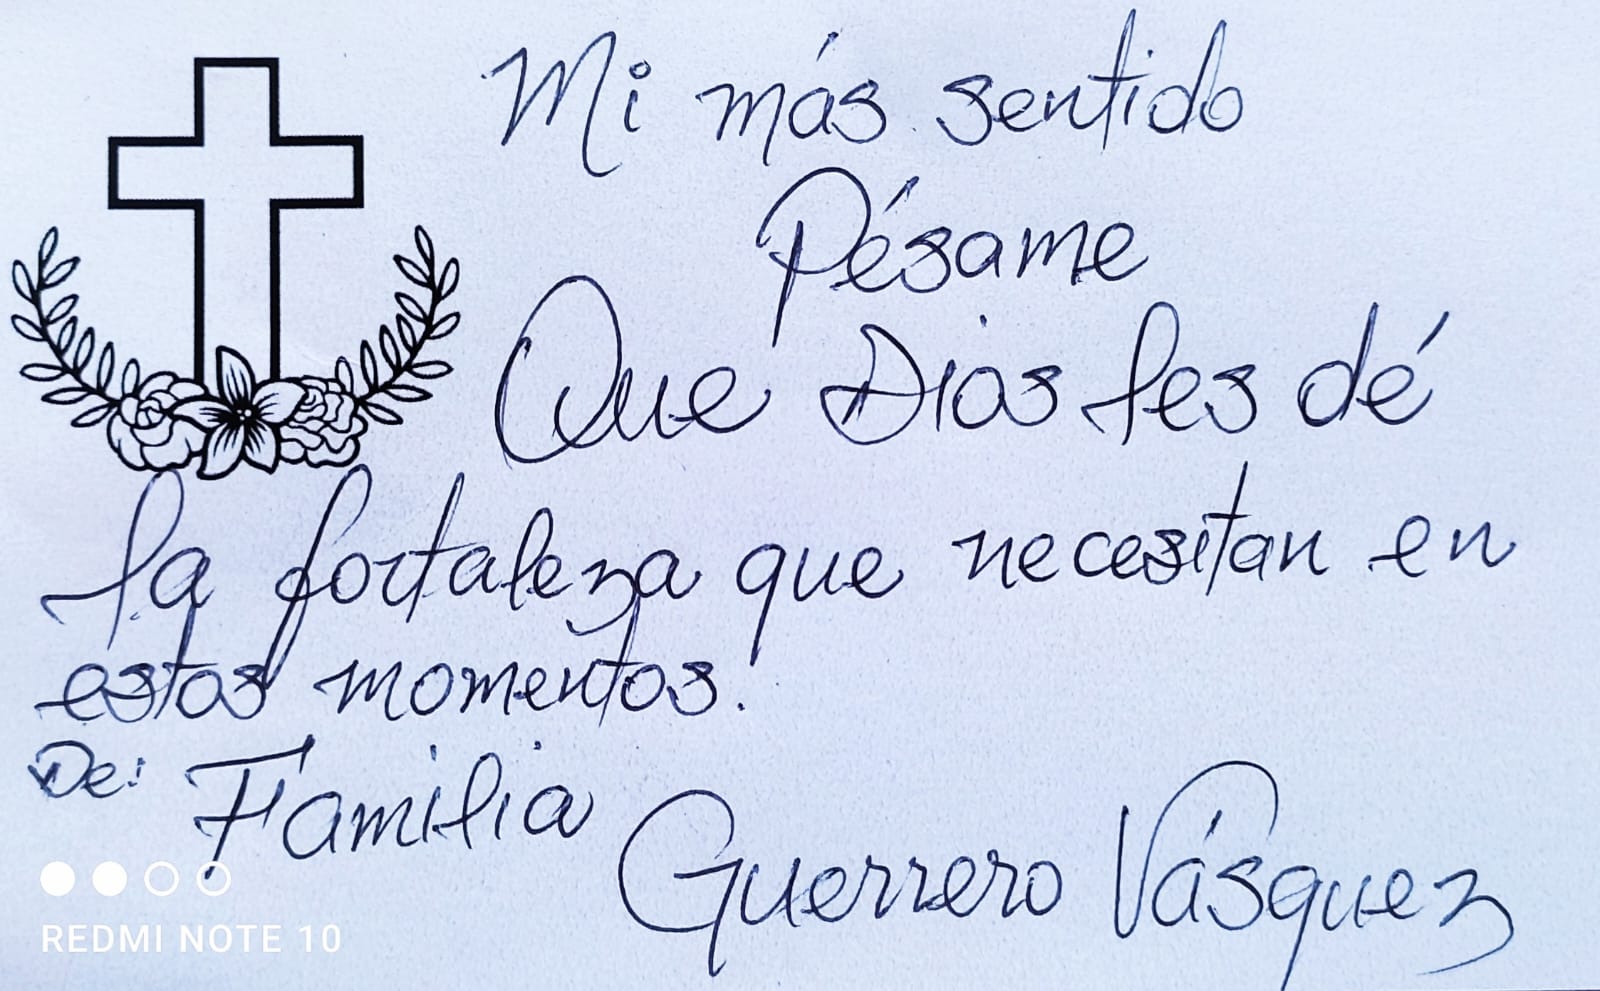 Mi más sentido
Pésame
Que Dios les dé
la fortaleza que necesitan en
estos momentos.
De: Familia
Guerrero Vásquez
REDMI NOTE 10